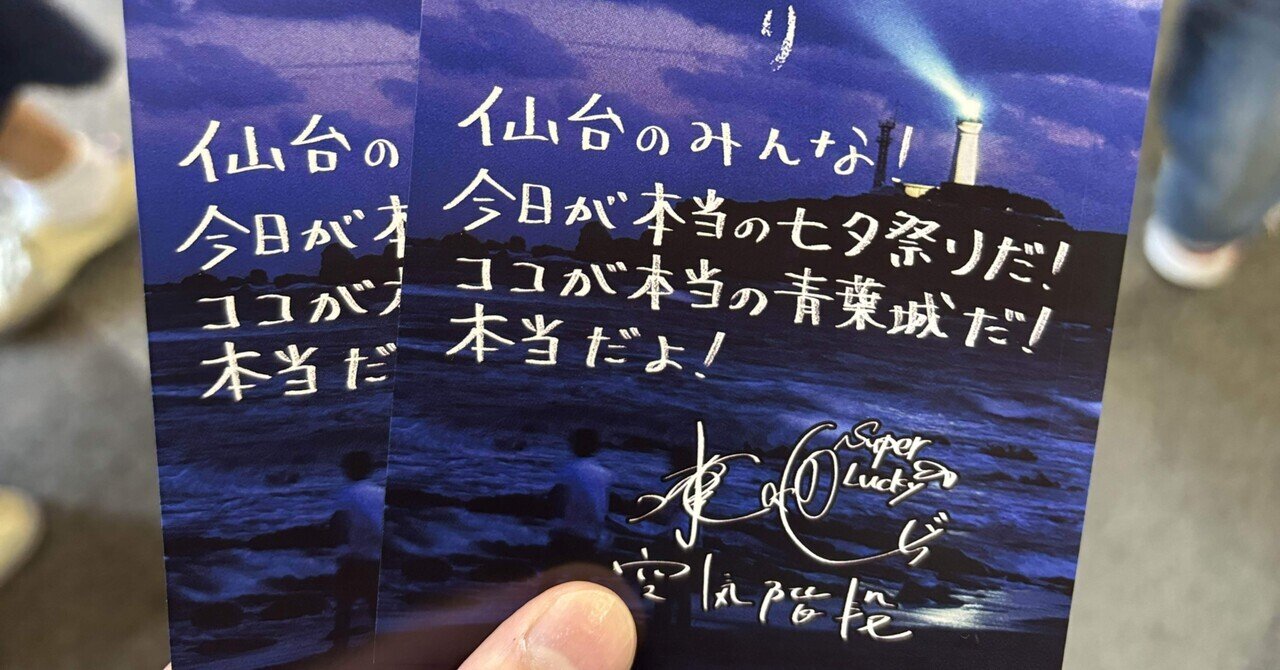 仙台の
今日が本
ココが
本当だ
り
仙台のみんな!
今日が本当の七夕祭りだ!
ココが本当の青葉城だ!
本当だよ!
Super
Lucky
空気階段